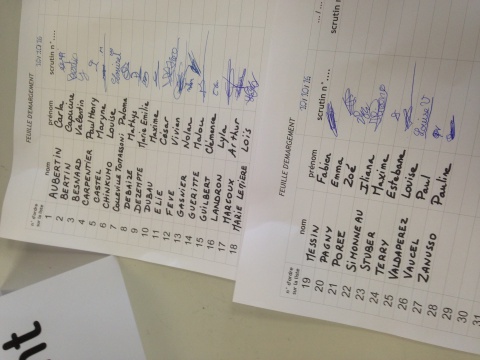 FEUILLE D'EMARGEMENT
n° d'ordre sur la liste nom prénom scrutin n°.....
1 AUBERTIN Carla
2 BERTIN Capucine
3 BESNARD Valentin
4 CARPENTIER Paul Henry
5 CASTEL Maryne
6 CHINKUMO Louise
7 COLLEVILLE TOMASSONI Paloma
8 DEBAIZE Mathys
9 DEZEMPTE Marie Emilie
10 DUBAU Maxime
11 ELIE
12 FEVE Vivian
13 GASNIER Nolan
14 GUERITTE Malou
15 GUILBERT Clémence
16 LANDRON Lyla
17 MARCOUX Arthur
18 MARIE Loïs
FEUILLE D'EMARGEMENT
n° d'ordre sur la liste nom prénom scrutin n°.....
19 MESSIN Fabien
20 PAGNY Emma
21 POREE Zoé
22 SIMONNEAU Iliana
23 STUBER Maxime
24 TERRY Estebane
25 VALDAPEREZ Louise
26 VAUCEL Paul
27 ZANUSSO Pauline
28
29
30
31
scrutin n°.....
nt